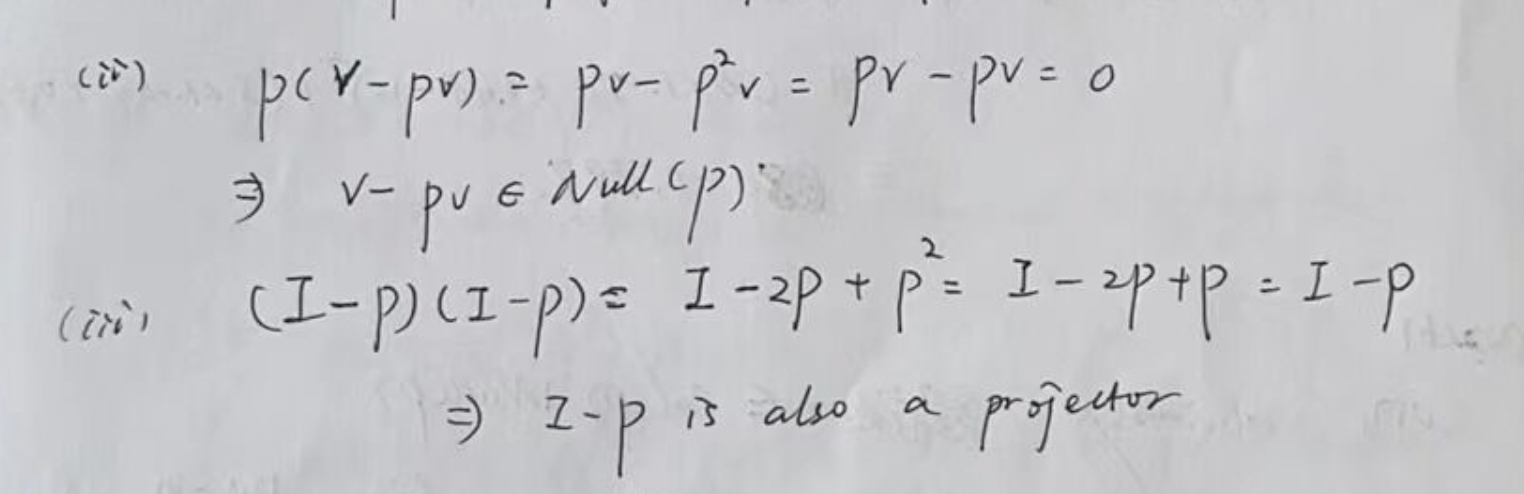 (ii) p(v-pv) = pv - p²v = pv - pv = 0
⇒ v - pv ∈ Null(p)
(iii) (I-p)(I-p) = I - 2p + p² = I - 2p + p = I - p
⇒ I-p is also a projector